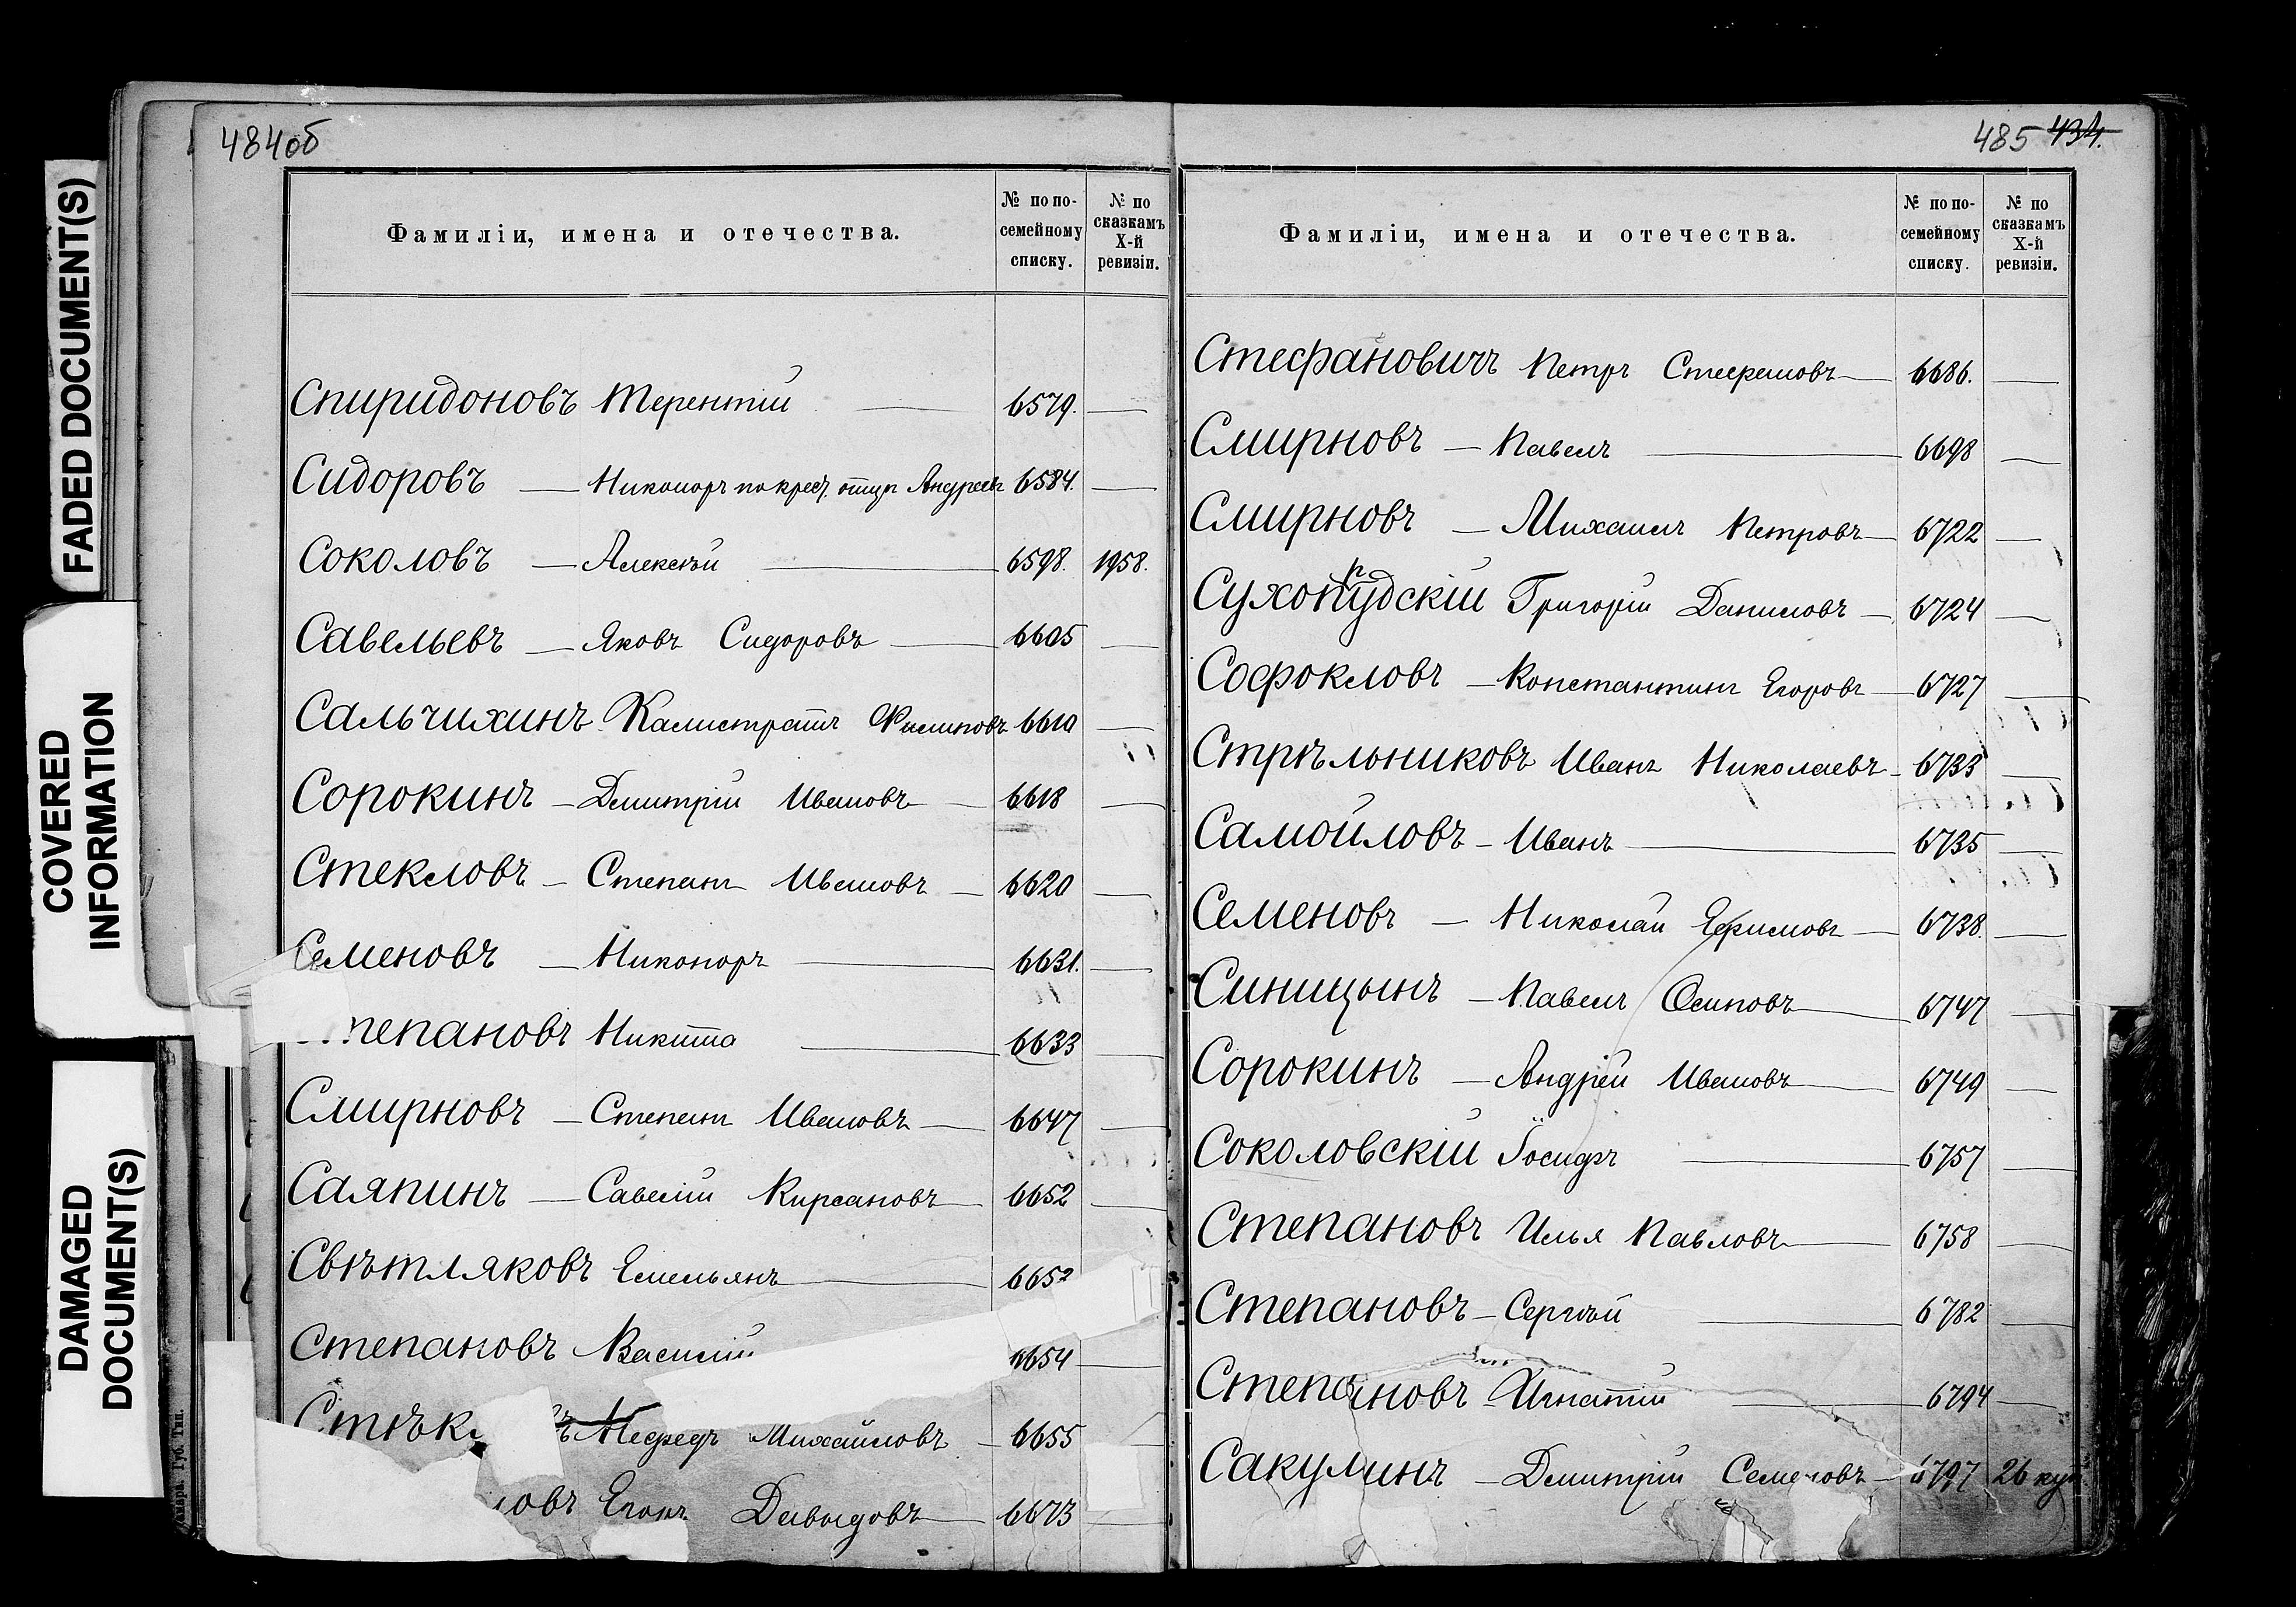 FADED DOCUMENT(S)
COVERED
INFORMATION
DAMAGED
DOCUMENT(S)
484об
Фамиліи, имена и отечества.
№ по по-
семейному
списку.
№ по
сказкамъ
X-й
ревизіи.
Спиридоновъ Терентій 6579.
Сидоровъ — Никоноръ по крест. отцу Андреевъ 6584.
Соколовъ — Алексѣй 6598. 1958.
Савельевъ — Яковъ Сидоровъ 6605
Сальчихинъ Калистратъ Филиповъ 6610
Сорокинъ — Дмитрій Ивановъ 6618
Стекловъ — Степанъ Ивановъ 6620
Семеновъ — Никоноръ 6631.
тепановъ Никита 6633
Смирновъ — Степанъ Ивановъ 6647
Саяпинъ — Савелій Кирсановъ 6652
Свѣтляковъ Емельянъ 6652
Степановъ Василій 6654
Стѣк ъ Мефедъ Михайловъ 6655
овъ Егоръ Давыдовъ 6673
485 434.
Фамиліи, имена и отечества.
№ по по-
семейному
списку.
№ по
сказкамъ
X-й
ревизіи.
Стефановичъ Петръ Стефановъ 6686.
Смирновъ — Павелъ 6698
Смирновъ — Михаилъ Петровъ 6722
Сухопрудскій Григорій Даниловъ 6724
Софокловъ — Константинъ Егоровъ 6727
Стрѣльниковъ Иванъ Николаевъ 6733
Самойловъ — Иванъ 6735
Семеновъ — Николай Ефимовъ 6738.
Синицынъ — Павелъ Осиповъ 6747
Сорокинъ — Андрей Ивановъ 6749
Соколовскій Іосифъ 6757
Степановъ Илья Павловъ 6758
Степановъ — Сергѣй 6782
Степановъ — Игнатій 6794
Сакулинъ — Дмитрій Семеновъ 6797 26 куп